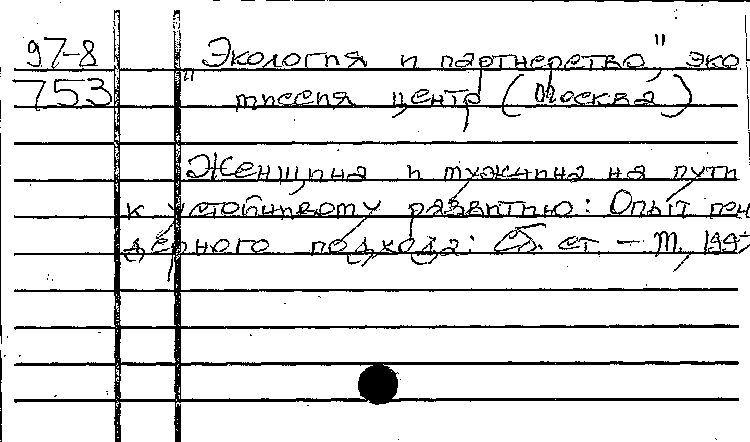 97-8 "Экология и партнерство", эко
753 миссия центр (Москва)
Женщина и мужчина на пути
к устойчивому развитию: Опыт ген
дерного подхода: Сб. ст. – М., 199